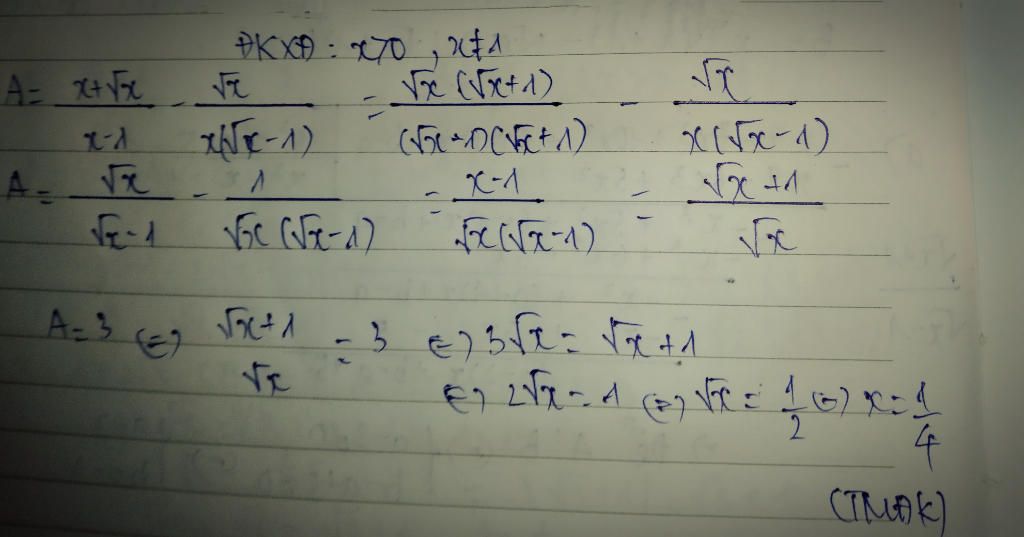 ĐKXĐ: x>0, x≠1
A = (x+√x)/(x-1) - √x/(x(√x-1)) = √x(√x+1)/((√x-1)(√x+1)) - √x/(x(√x-1))
A = √x/(√x-1) - 1/(√x(√x-1)) = (x-1)/(√x(√x-1)) = (√x+1)/√x
A=3 (=) (√x+1)/√x = 3 (=) 3√x = √x+1
(=) 2√x = 1 (=) √x = 1/2 (=) x = 1/4
(TMĐK)